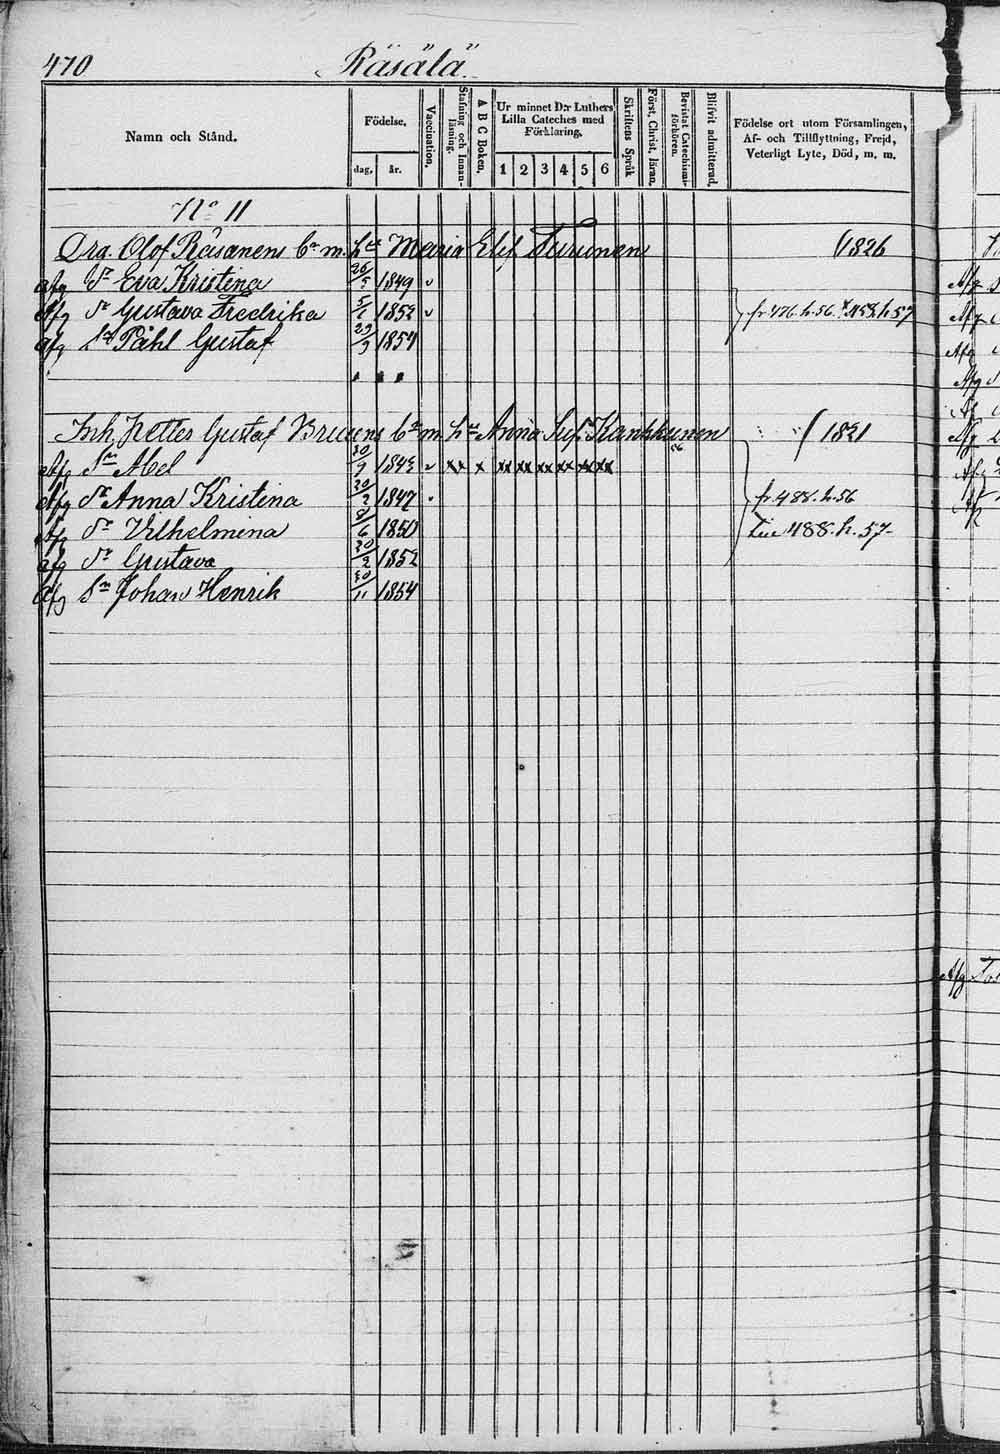 470 Räsälä.
Namn och Stånd.
Födelse.
dag. år.
Vaccination.
Stafning och Innanläsning.
A B C Boken.
Ur minnet D:r Luthers Lilla Cateches med Förklaring.
1 2 3 4 5 6
Skriftens Språk
Först. Christ. läran.
Bevistat Catechismiförhören.
Blifvit admitterad.
Födelse ort utom Församlingen, Af- och Tillflyttning, Frejd, Veterligt Lyte, Död, m. m.
No 11
Olof Räsänens m. hu Maria Elis. Turunen 1826
afg Dr Eva Kristina 26/5 1849
Afg Dr Gustava Fredrika 5/2 1852 fr 476. h. 56. 458. h. 57
afg Sn Påhl Gustaf 29/9 1854
Inh. Petter Gustaf m hu Anna Sus. Kankkunen 1821
Afg Sn Abel 30/9 1843
Afg Dr Anna Kristina 20/2 1847 fr 488. h. 56
Afg Dr Vilhelmina 8/6 1850 488. h. 57
afg Dr Gustava 20/2 1852
Afg Sn Johan Henrik 30/11 1854